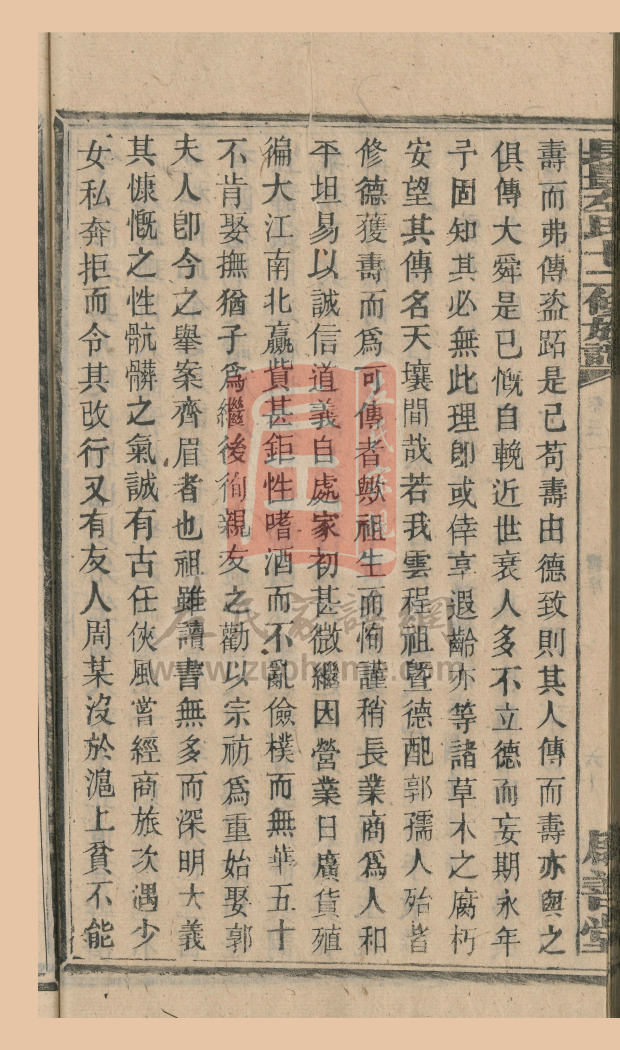 壽而弗傳盜跖是已苟壽由德致則其人傳而壽亦與之
俱傳大舜是已慨自輓近世衰人多不立德而妄期永年
予固知其必無此理卽或倖享遐齡亦等諸草木之腐朽
安望其傳名天壤間哉若我雲程祖暨德配郭孺人殆皆
修德獲壽而爲可傳者歟祖生而恂謹稍長業商爲人和
平坦易以誠信道義自處家初甚微繼因營業日廣貨殖
徧大江南北贏貲甚鉅性嗜酒而不亂儉樸而無華五十
不肯娶撫猶子爲繼後徇親友之勸以宗祊爲重始娶郭
夫人卽今之舉案齊眉者也祖雖讀書無多而深明大義
其慷慨之性骯髒之氣誠有古任俠風嘗經商旅次遇少
女私奔拒而令其改行又有友人周某沒於滬上貧不能
左氏家譜網
www.zuohome.com